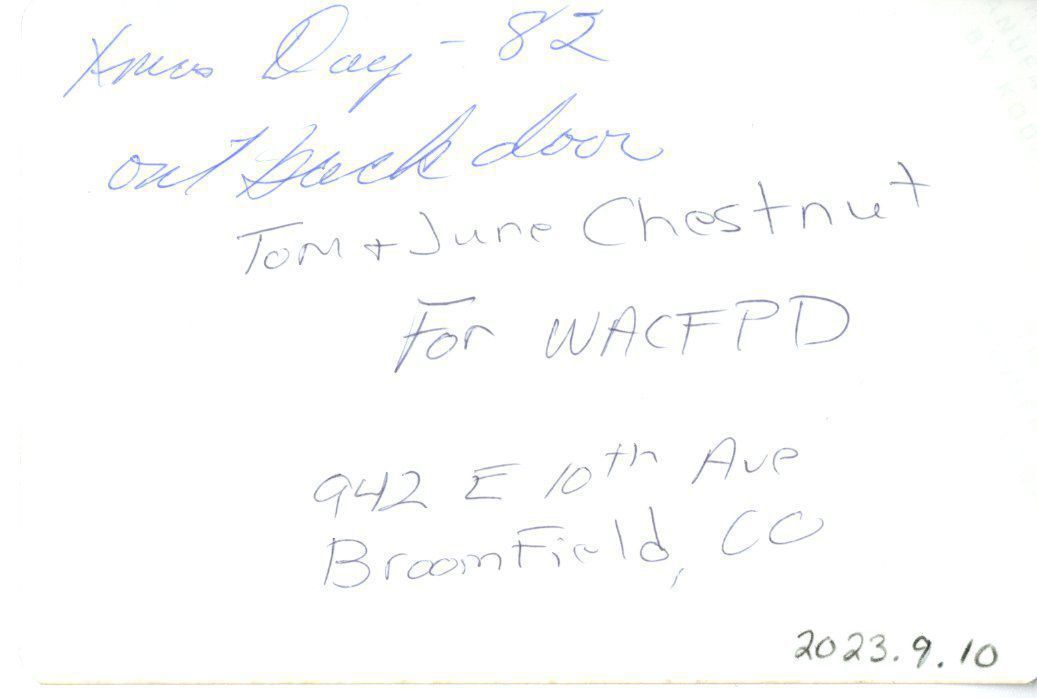 Xmas Day - 82
out back door
Tom + June Chestnut
For WACFPD
942 E 10th Ave
Broomfield, CO
2023.9.10